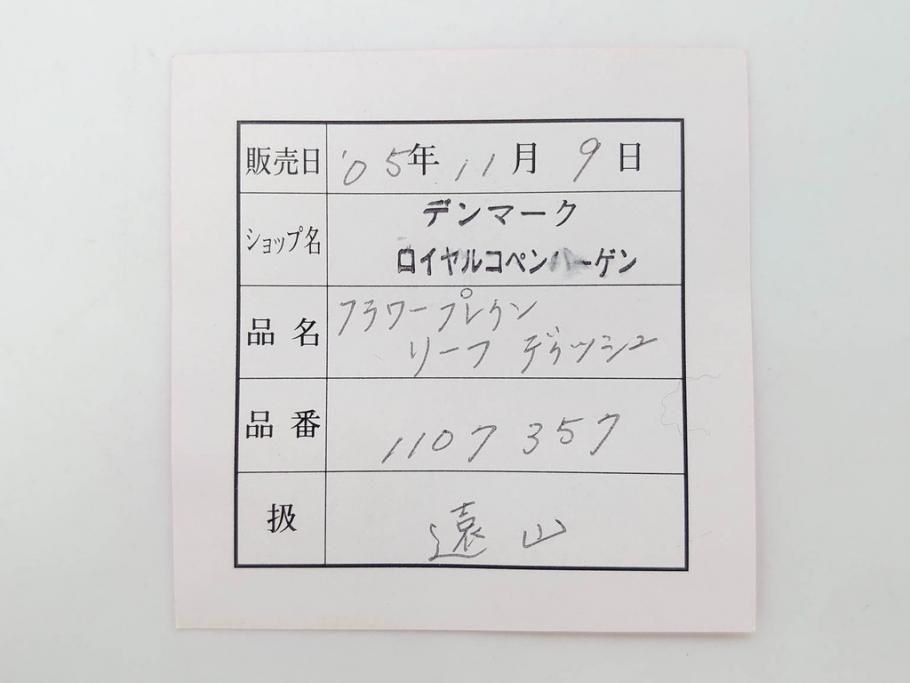 販売日 '05年 11月 9日
ショップ名 デンマーク
ロイヤルコペンハーゲン
品名 フラワープレイン
リーフ ディッシュ
品番 1107 357
扱 遠山